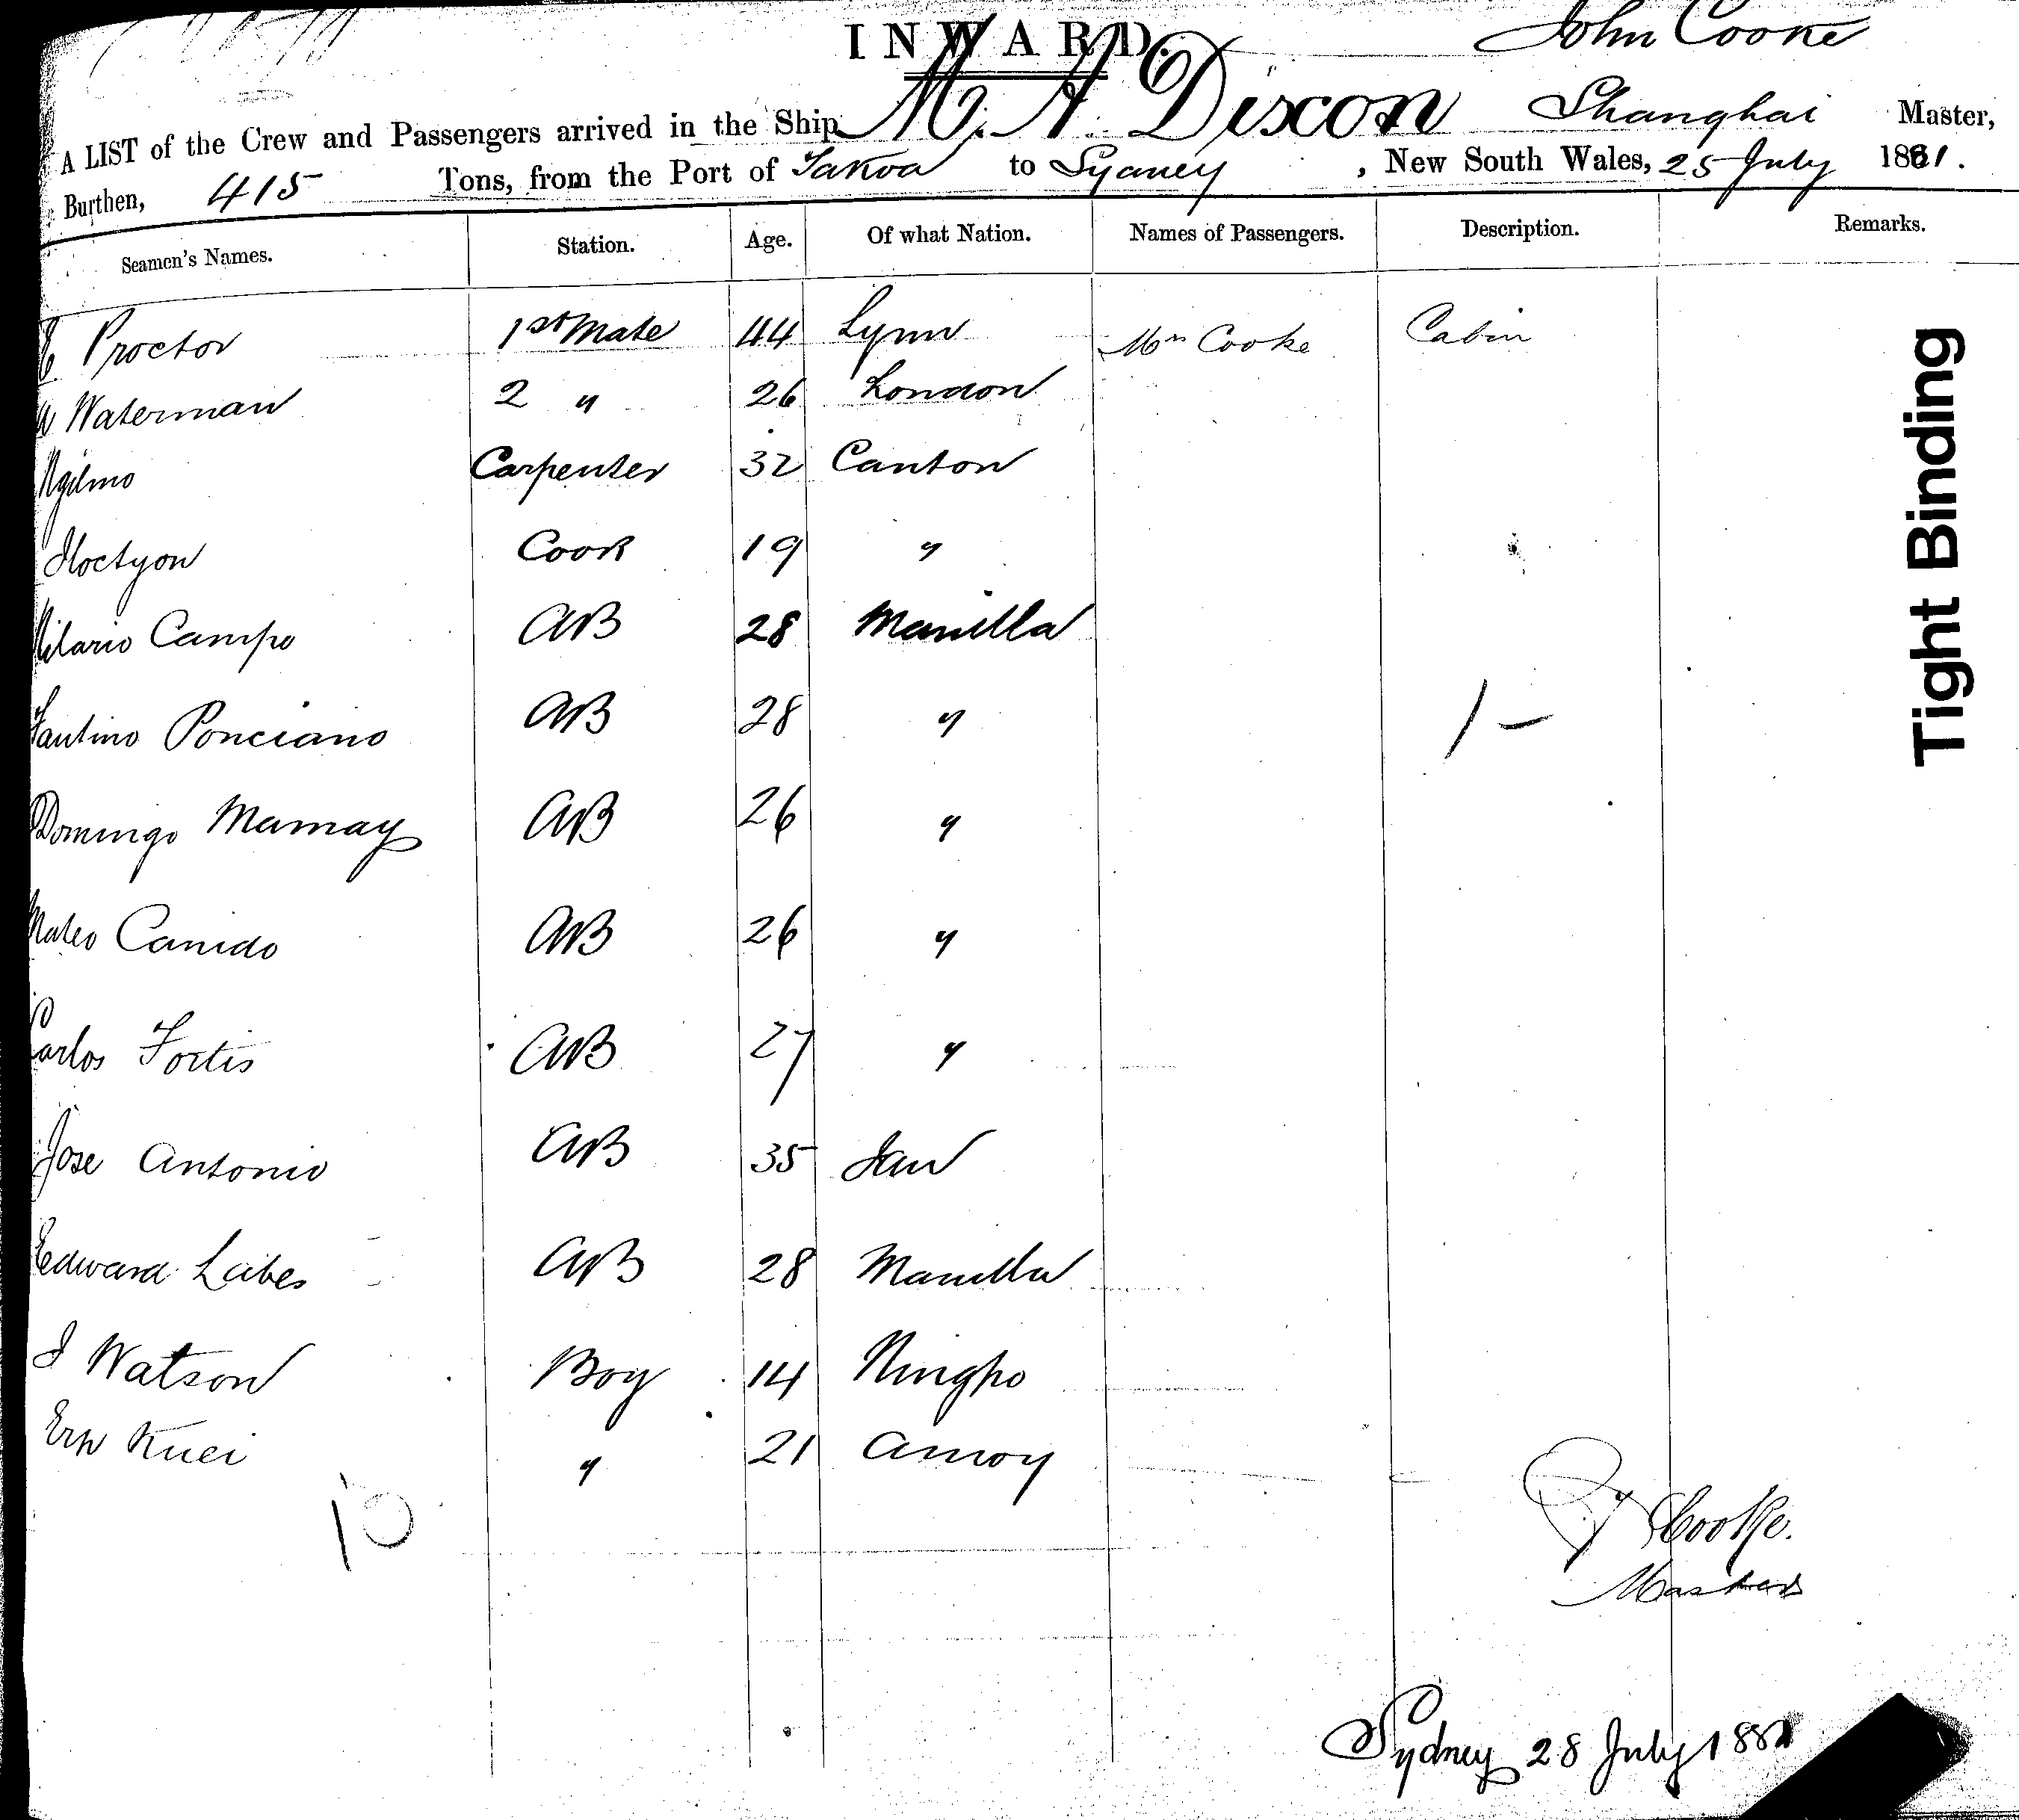 INWARD.
John Cooke
A LIST of the Crew and Passengers arrived in the Ship M. A. Dixon Shanghai Master,
Burthen, 415 Tons, from the Port of Takoa to Sydney, New South Wales, 25 July 1881.
Seamen's Names. Station. Age. Of what Nation. Names of Passengers. Description. Remarks.
Proctor 1st Mate 44 Lynn Mrs Cooke Cabin
W Waterman 2 " 26 London
Carpenter 32 Canton
Hoctyon Cook 19 "
Hilario Campo AB 28 Manilla
Fautino Ponciano AB 28 " 1 –
Domingo Mamay AB 26 "
Mateo Canido AB 26 "
Carlos Fortis AB 27 "
Jose Antonio AB 35
Edward Labes AB 28 Manilla
J Watson Boy 14 Ningpo
Kuei " 21 Amoy
10
J Cooke.
Master
Sydney 28 July 1881
Tight Binding